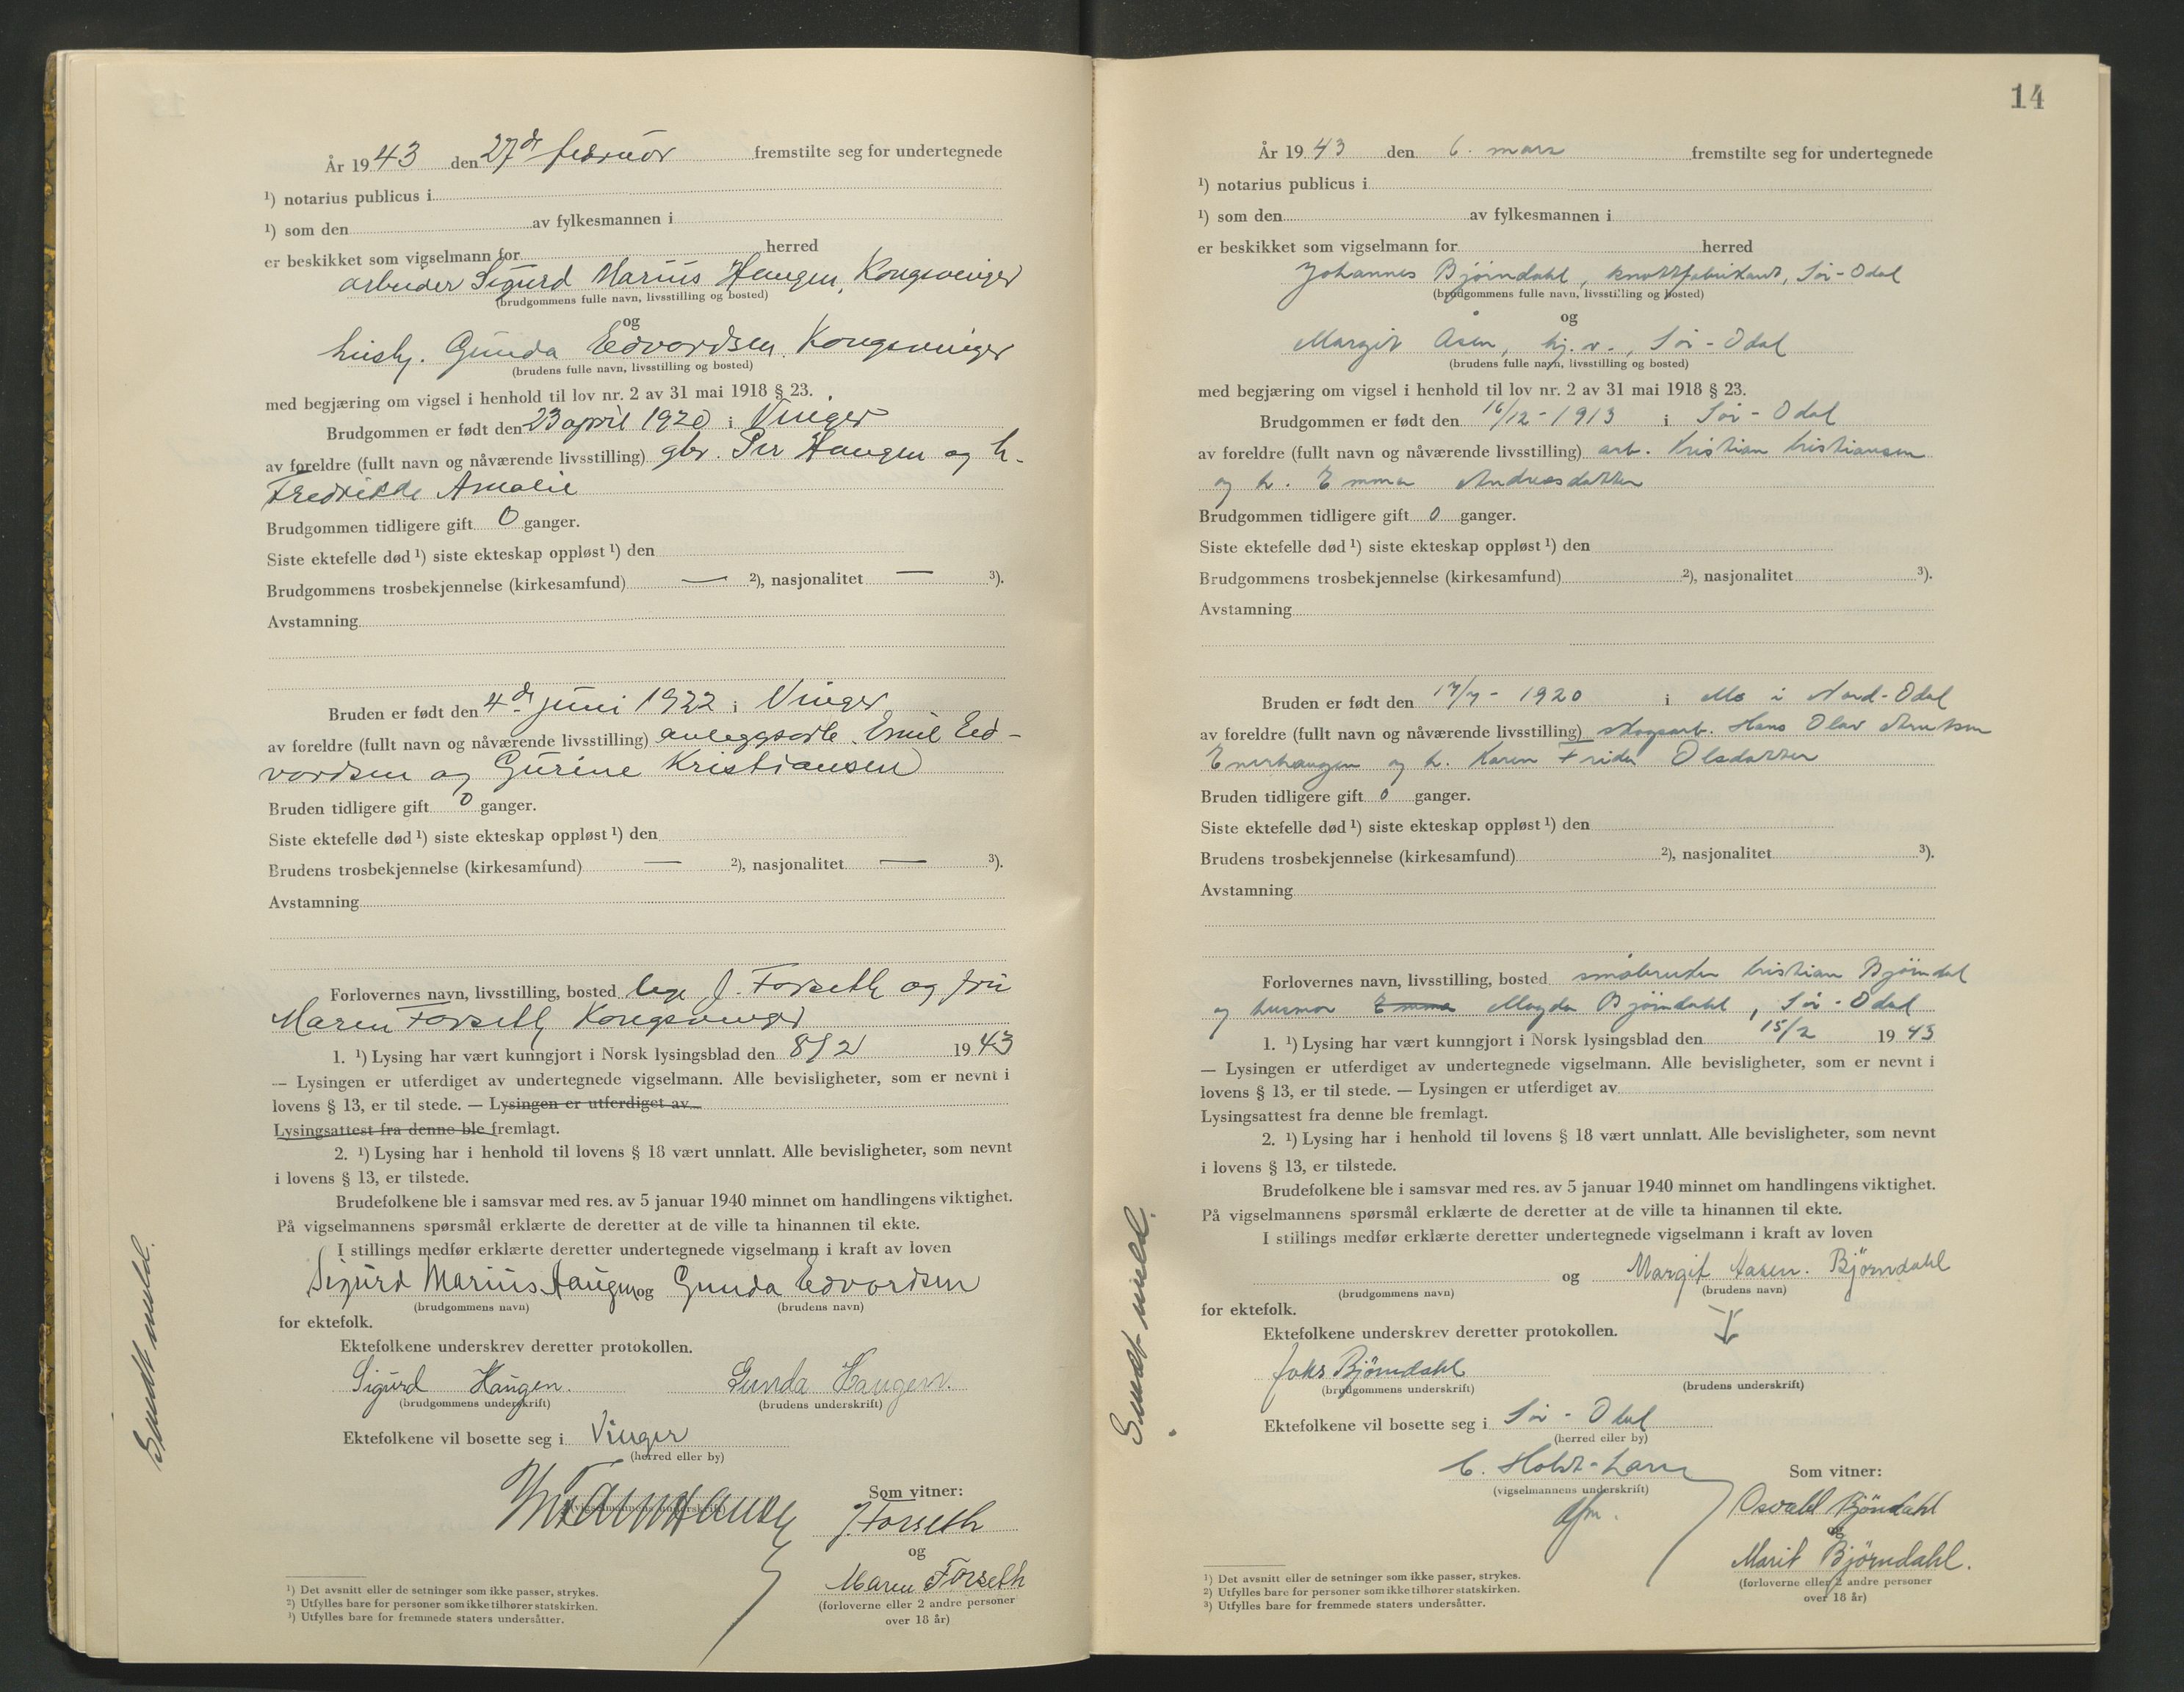 År 1943 den 27de februar fremstilte seg for undertegnede
¹) notarius publicus i
¹) som den av fylkesmannen i
er beskikket som vigselmann for herred
arbeider Sigurd Marius Haugen, Kongsvinger
(brudgommens fulle navn, livsstilling og bosted)
og
hushj. Gunda Edvardsen, Kongsvinger
(brudens fulle navn, livsstilling og bosted)
med begjæring om vigsel i henhold til lov nr. 2 av 31 mai 1918 § 23.
Brudgommen er født den 23 april 1920 i Vinger
av foreldre (fullt navn og nåværende livsstilling) gbr. Per Haugen og h.
Fredrikke Amalie
Brudgommen tidligere gift 0 ganger.
Siste ektefelle død ¹) siste ekteskap oppløst ¹) den
Brudgommens trosbekjennelse (kirkesamfund) — ²), nasjonalitet — ³).
Avstamning
Bruden er født den 4de juni 1922 i Vinger
av foreldre (fullt navn og nåværende livsstilling) anleggsarb. Emil Ed-
vardsen og Gurine Kristiansen
Bruden tidligere gift 0 ganger.
Siste ektefelle død ¹) siste ekteskap oppløst ¹) den
Brudens trosbekjennelse (kirkesamfund) — ²), nasjonalitet — ³).
Avstamning
Forlovernes navn, livsstilling, bosted lege J. Forseth og fru
Maren Forseth Kongsvinger
1. ¹) Lysing har vært kunngjort i Norsk lysingsblad den 8/2 1943
— Lysingen er utferdiget av undertegnede vigselmann. Alle bevisligheter, som er nevnt i
lovens § 13, er til stede. — Lysingen er utferdiget av
Lysingsattest fra denne ble fremlagt.
2. ¹) Lysing har i henhold til lovens § 18 vært unnlatt. Alle bevisligheter, som nevnt
i lovens § 13, er tilstede.
Brudefolkene ble i samsvar med res. av 5 januar 1940 minnet om handlingens viktighet.
På vigselmannens spørsmål erklærte de deretter at de ville ta hinannen til ekte.
I stillings medfør erklærte deretter undertegnede vigselmann i kraft av loven
Sigurd Marius Haugen og Gunda Edvardsen
(brudgommens navn) (brudens navn)
for ektefolk.
Ektefolkene underskrev deretter protokollen.
Sigurd Haugen. Gunda Haugen.
(brudgommens underskrift) (brudens underskrift)
Ektefolkene vil bosette seg i Vinger
(herred eller by)
(vigselmannens underskrift)
Som vitner:
J Forseth
og
Maren Forseth
(forloverne eller 2 andre personer
over 18 år)
¹) Det avsnitt eller de setninger som ikke passer, strykes.
²) Utfylles bare for personer som ikke tilhører statskirken.
³) Utfylles bare for fremmede staters undersåtter.
Sendt meld.
14
År 1943 den 6. mars fremstilte seg for undertegnede
¹) notarius publicus i
¹) som den av fylkesmannen i
er beskikket som vigselmann for herred
Johannes Bjørndahl, knottfabrikant, Sør-Odal
(brudgommens fulle navn, livsstilling og bosted)
og
Margit Åsen, hj.v., Sør-Odal
(brudens fulle navn, livsstilling og bosted)
med begjæring om vigsel i henhold til lov nr. 2 av 31 mai 1918 § 23.
Brudgommen er født den 16/12-1913 i Sør-Odal
av foreldre (fullt navn og nåværende livsstilling) arb. Kristian Kristiansen
og h. Emma Andreasdatter
Brudgommen tidligere gift 0 ganger.
Siste ektefelle død ¹) siste ekteskap oppløst ¹) den
Brudgommens trosbekjennelse (kirkesamfund) ²), nasjonalitet ³).
Avstamning
Bruden er født den 17/7-1920 i Mo i Nord-Odal
av foreldre (fullt navn og nåværende livsstilling) skogsarb. Hans Olav Arntsen
Enerhaugen og h. Karen Frida Olsdatter
Bruden tidligere gift 0 ganger.
Siste ektefelle død ¹) siste ekteskap oppløst ¹) den
Brudens trosbekjennelse (kirkesamfund) ²), nasjonalitet ³).
Avstamning
Forlovernes navn, livsstilling, bosted småbruker Kristian Bjørndal
og husmor Emma Magda Bjørndahl, Sør-Odal
1. ¹) Lysing har vært kunngjort i Norsk lysingsblad den 15/2 1943
— Lysingen er utferdiget av undertegnede vigselmann. Alle bevisligheter, som er nevnt i
lovens § 13, er til stede. — Lysingen er utferdiget av
Lysingsattest fra denne ble fremlagt.
2. ¹) Lysing har i henhold til lovens § 18 vært unnlatt. Alle bevisligheter, som nevnt
i lovens § 13, er tilstede.
Brudefolkene ble i samsvar med res. av 5 januar 1940 minnet om handlingens viktighet.
På vigselmannens spørsmål erklærte de deretter at de ville ta hinannen til ekte.
I stillings medfør erklærte deretter undertegnede vigselmann i kraft av loven
og Margit Aasen. Bjørndahl
(brudgommens navn) (brudens navn)
for ektefolk.
Ektefolkene underskrev deretter protokollen.
Johs Bjørndahl
(brudgommens underskrift) (brudens underskrift)
Ektefolkene vil bosette seg i Sør-Odal
(herred eller by)
C. Holst-Larsen
(vigselmannens underskrift)
Som vitner:
Osvald Bjöndahl
og
Marit Bjørndahl.
(forloverne eller 2 andre personer
over 18 år)
¹) Det avsnitt eller de setninger som ikke passer, strykes.
²) Utfylles bare for personer som ikke tilhører statskirken.
³) Utfylles bare for fremmede staters undersåtter.
Sendt meld.